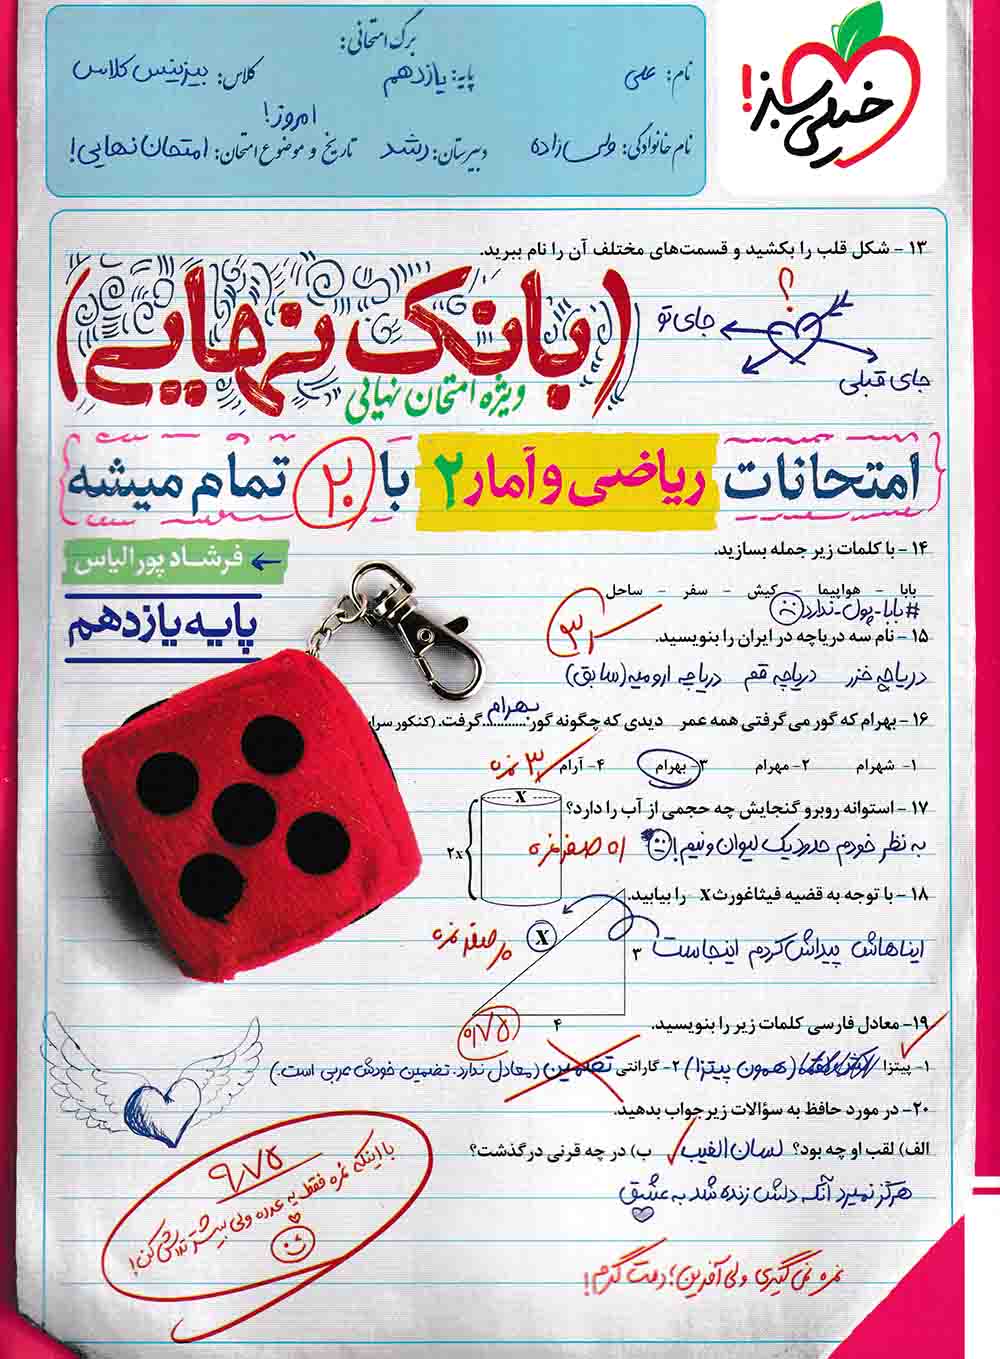 خیلی سبز!
برگ امتحانی:
نام: علی
پایه: یازدهم
کلاس: بیزینس کلاس
نام خانوادگی: ولی زاده
دبیرستان: رشد
تاریخ و موضوع امتحان: امتحان نهایی!
امروز!
۱۳ - شکل قلب را بکشید و قسمت‌های مختلف آن را نام ببرید.
؟
جای تو
جای قبلی
(بانک نهایی)
ویژه امتحان نهایی
امتحانات ریاضی و آمار ۲ با ۲۰ تمام میشه
فرشاد پورالیاس
پایه یازدهم
۱۴ - با کلمات زیر جمله بسازید.
بابا - هواپیما - کیش - سفر - ساحل
#بابا-پول-ندارد
۱۵ - نام سه دریاچه در ایران را بنویسید.
دریاچه خزر دریاچه قم دریاچه ارومیه (سابق)
۱۶ - بهرام که گور می گرفتی همه عمر دیدی که چگونه گور بهرام گرفت. (کنکور سراسری
۱- شهرام ۲- مهرام ۳- بهرام ۴- آرام
۳ نمره
۱۷ - استوانه روبرو گنجایش چه حجمی از آب را دارد؟
x
۲x
به نظر خودم حدود یک لیوان و نیم!
صفر نمره
۱۸ - با توجه به قضیه فیثاغورث x را بیابید.
X
۳
۴
ایناهاش پیداش کردم اینجاست
صفر نمره
۰/۷۵
۱۹- معادل فارسی کلمات زیر را بنویسید.
۱- پیتزا (همون پیتزا) ۲- گارانتی تضمین (معادل ندارد. تضمین خودش عربی است.)
۲۰- در مورد حافظ به سؤالات زیر جواب بدهید.
الف) لقب او چه بود؟ لسان الغیب ب) در چه قرنی درگذشت؟
هرگز نمیرد آنکه دلش زنده شد به عشق
۹/۷۵
با اینکه نمره فقط یه عدده ولی بیشتر تلاش کن!
نمره نمی گیری ولی آفرین؛ دمت گرم!